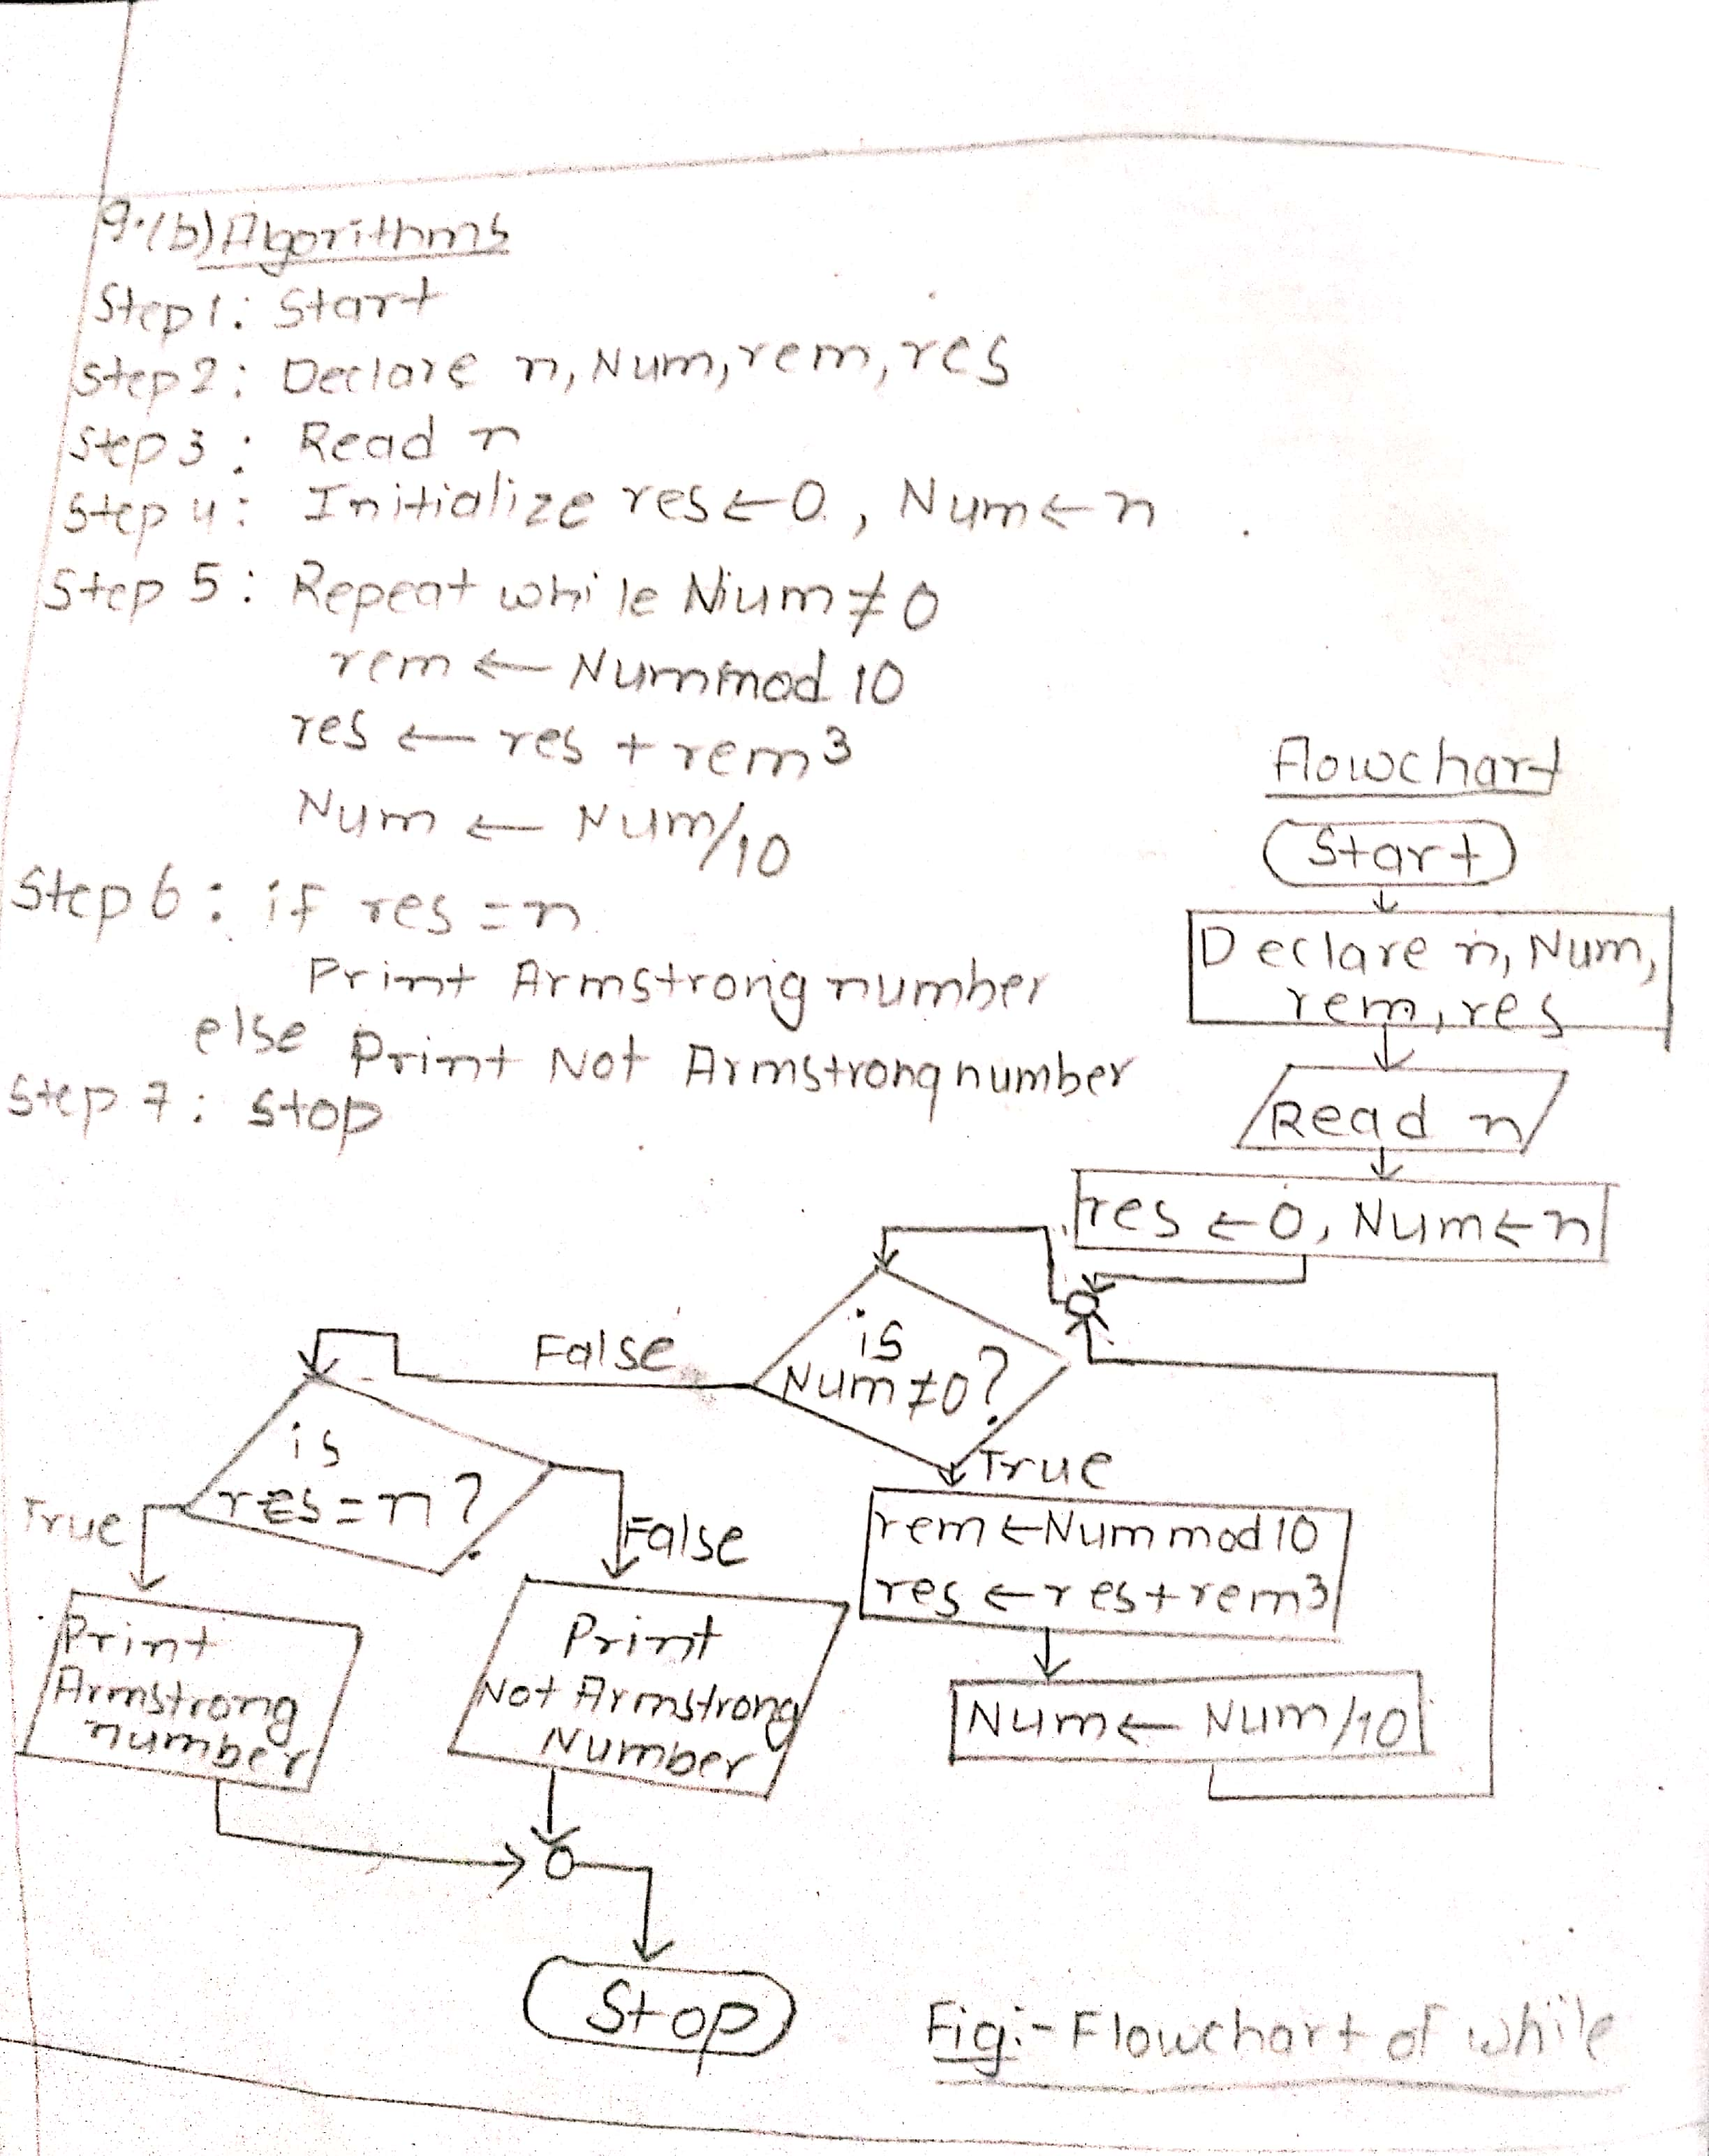 9.(b) Algorithms
Step 1: Start
Step 2: Declare n, Num, rem, res
Step 3: Read n
Step 4: Initialize res ← 0, Num ← n
Step 5: Repeat while Num ≠ 0
rem ← Num mod 10
res ← res + rem³
Num ← Num/10
Step 6: if res = n
Print Armstrong number
else Print Not Armstrong number
Step 7: Stop
Flowchart
Start
Declare n, Num,
rem, res
Read n
res ← 0, Num ← n
is
Num ≠ 0?
False
True
rem ← Num mod 10
res ← res + rem³
Num ← Num/10
is
res = n?
True
False
Print
Armstrong
number
Print
Not Armstrong
Number
Stop
Fig:- Flowchart of while